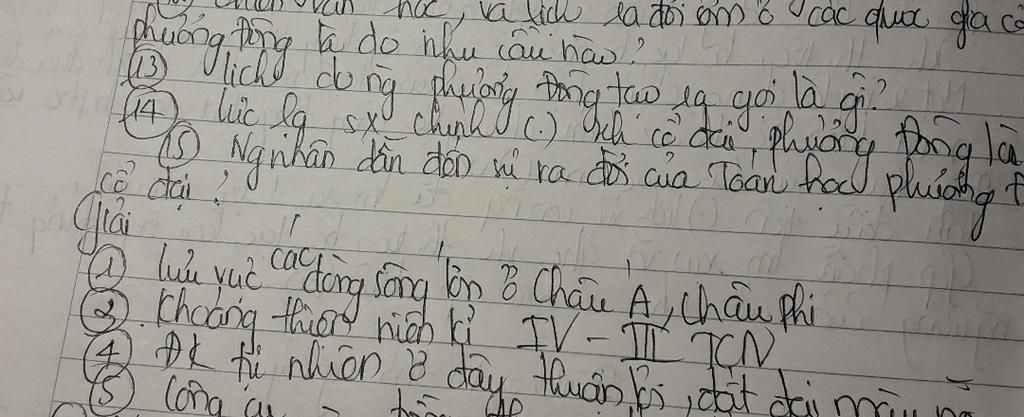 thiên văn học, và lịch ra đời sớm ở các quốc gia cổ
phương Đông là do nhu cầu nào?
(13) lịch do ng phương Đông tạo ra gọi là gì?
(14) lực lg sx chính (.) xh cổ đại phương Đông là
(15) Ng nhân dẫn đến sự ra đời của Toán học phương
cổ đại?
Giải
(1) lưu vực các dòng sông lớn ở Châu Á, Châu Phi
(2). Khoảng thiên niên kỉ IV - III TCN
(4) ĐK tự nhiên ở đây thuận lợi, đất đai màu
(5) Công cụ